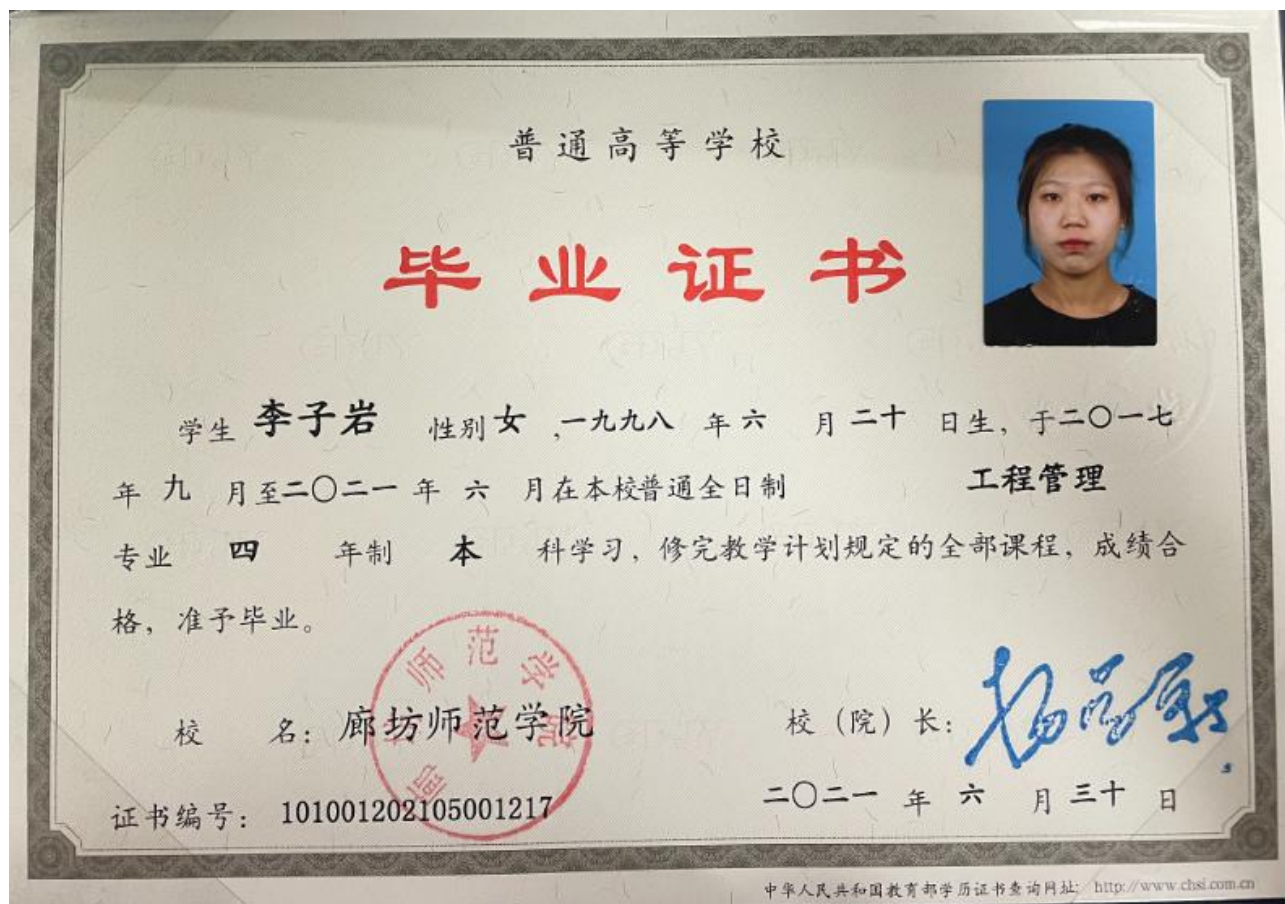 普通高等学校
毕业证书
学生 李子岩 性别 女 ,一九九八 年 六 月 二十 日生，于二〇一七
年 九 月至二〇二一 年 六 月在本校普通全日制 工程管理
专业 四 年制 本 科学习，修完教学计划规定的全部课程，成绩合
格，准予毕业。
校 名：廊坊师范学院
校（院）长：
证书编号：101001202105001217
二〇二一 年 六 月 三十 日
中华人民共和国教育部学历证书查询网址：http://www.chsi.com.cn